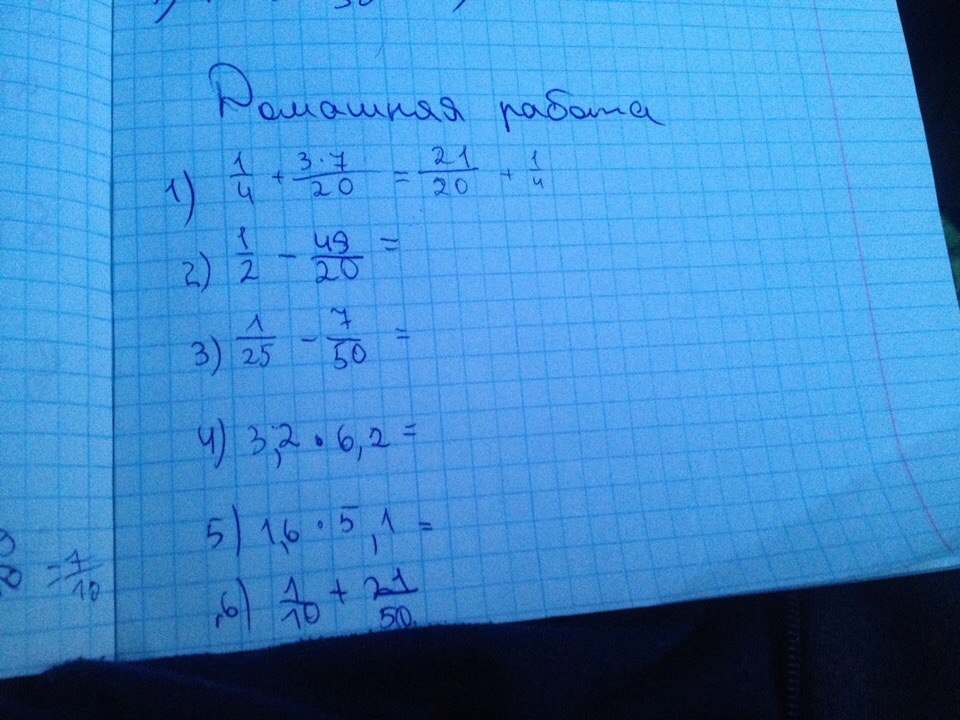 Домашняя работа
1) 1/4 + 3·7/20 = 21/20 + 1/4
2) 1/2 - 49/20 =
3) 1/25 - 7/50 =
4) 3,2 · 6,2 =
5) 1,6 · 5,1 =
= 1/10
6) 1/10 + 21/50